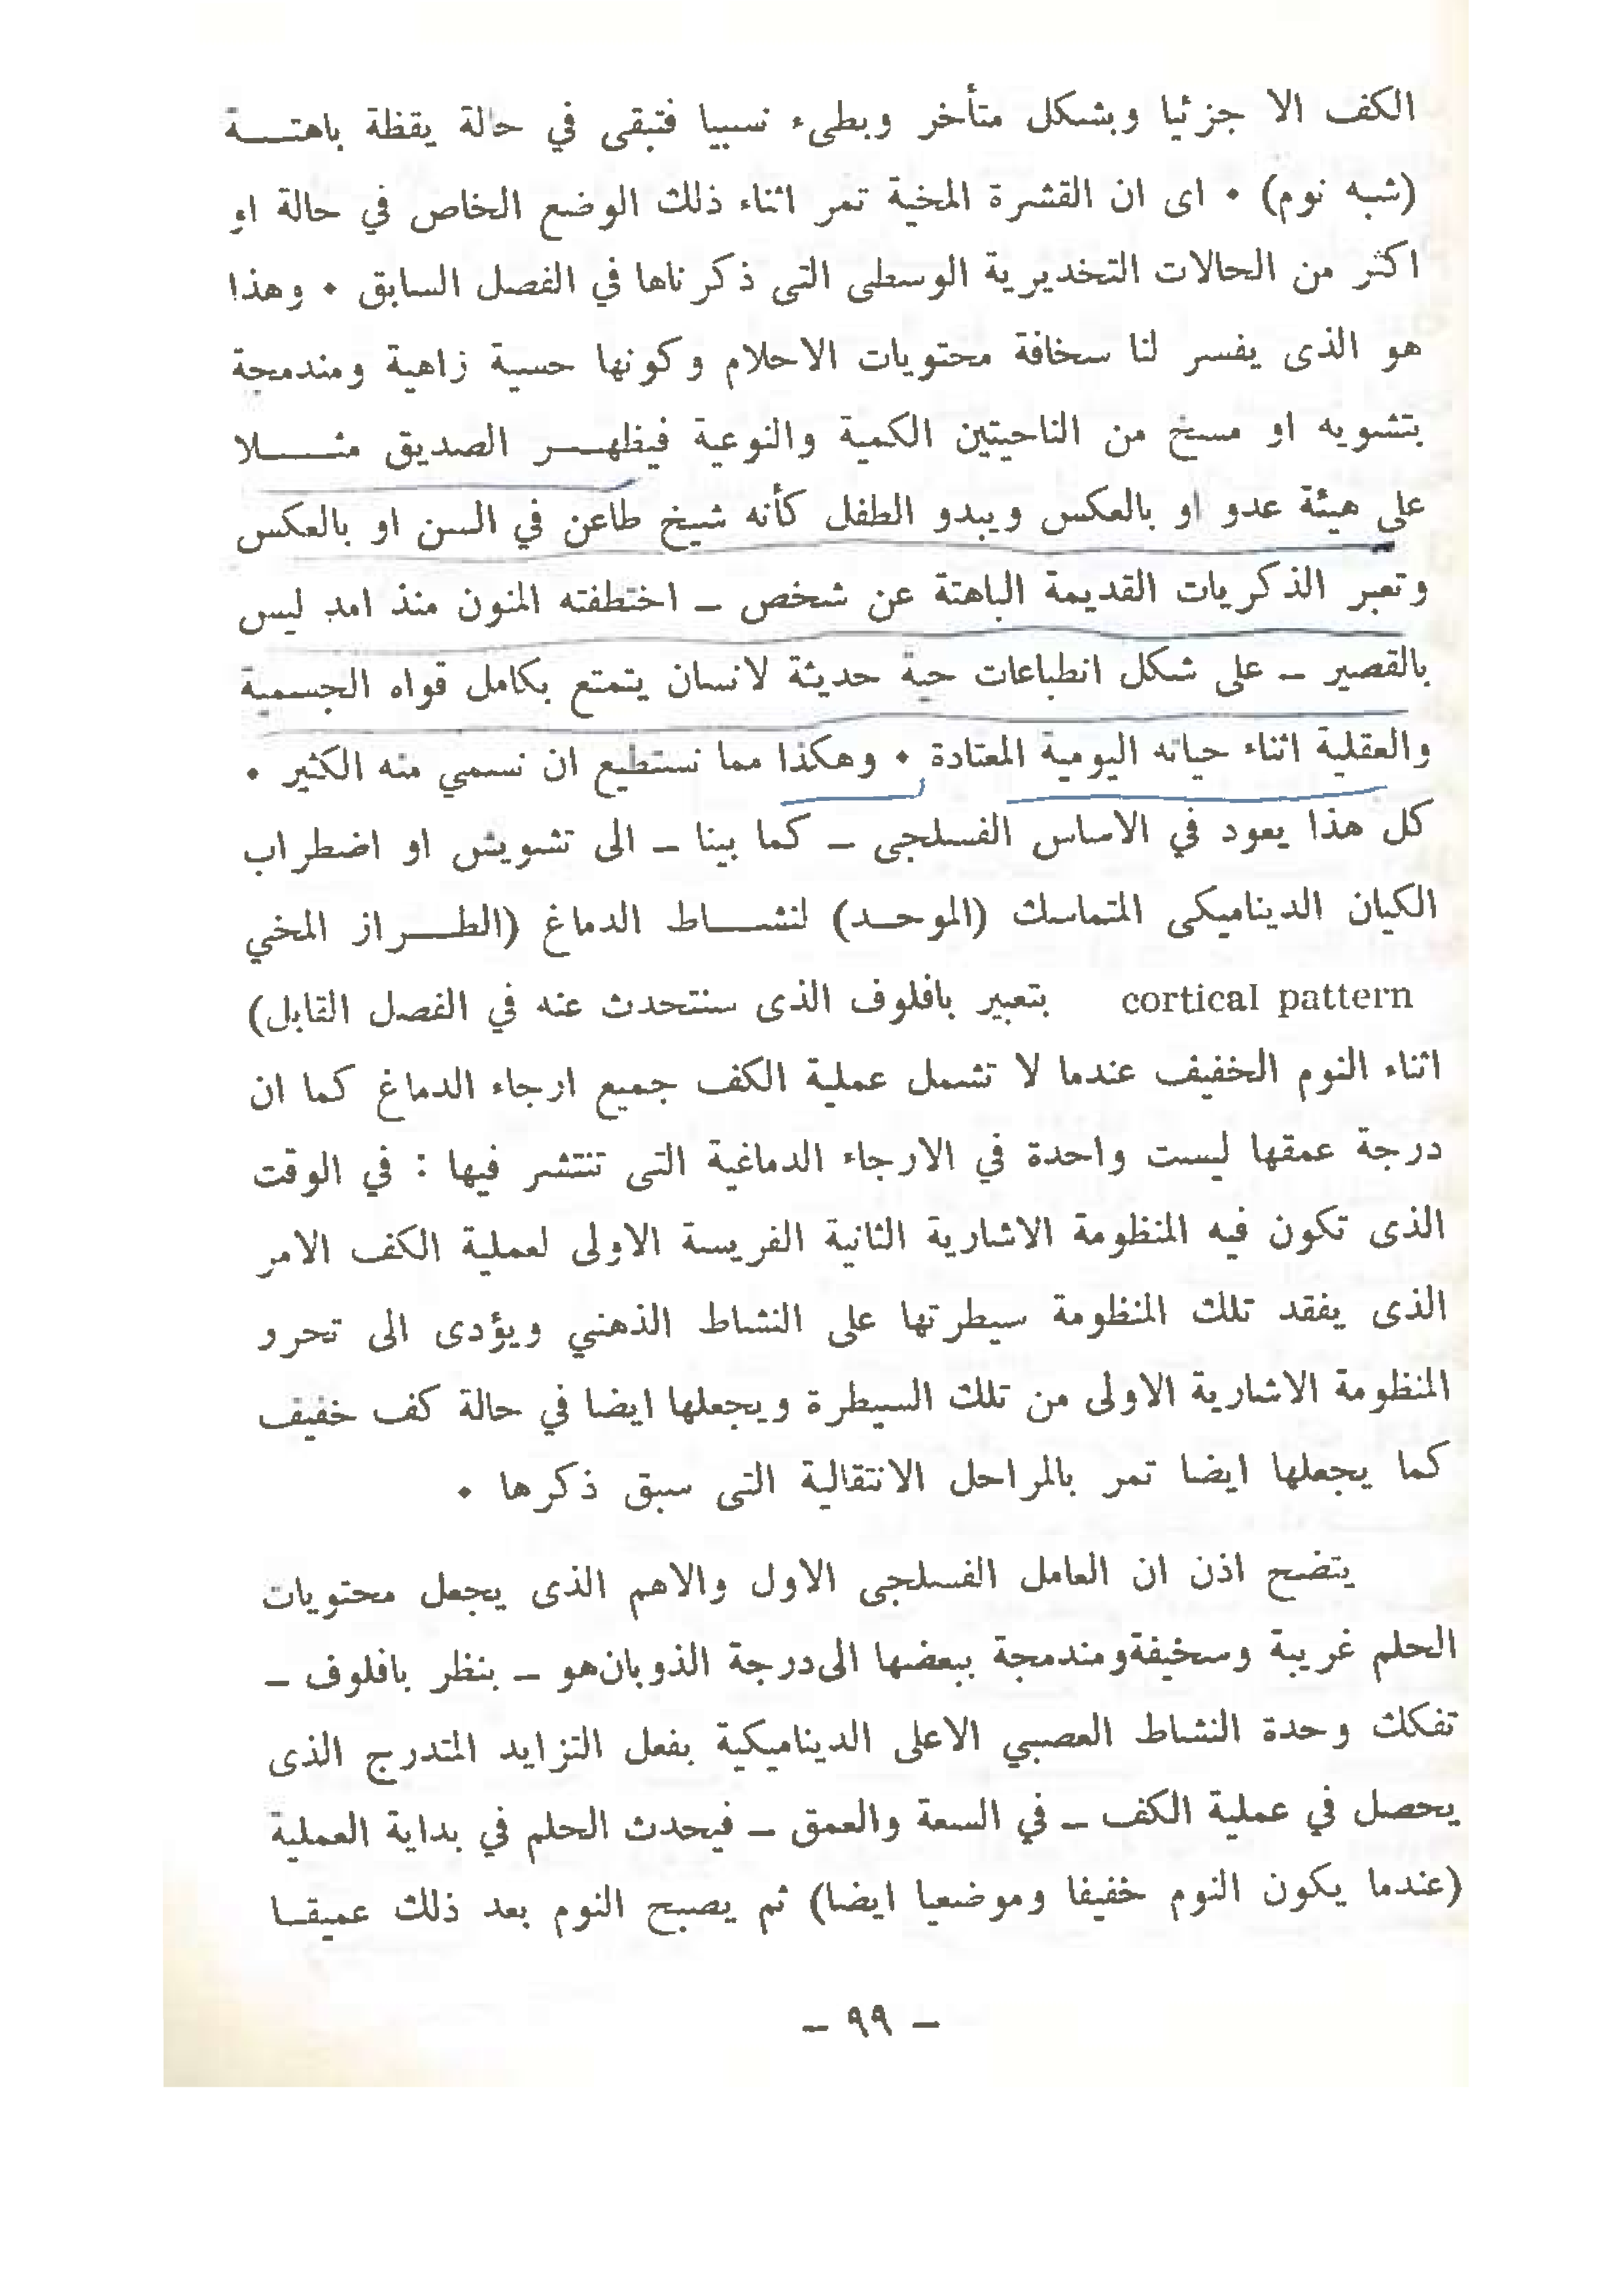 الكف الا جزئيا وبشكل متأخر وبطىء نسبيا فتبقى في حالة يقظة باهتـــة
(شبه نوم) ٠ اى ان القشرة المخية تمر اثناء ذلك الوضع الخاص في حالة او
اكثر من الحالات التخديرية الوسطى التى ذكرناها في الفصل السابق ٠ وهذا
هو الذى يفسر لنا سخافة محتويات الاحلام وكونها حسية زاهية ومندمجة
بتشويه او مسخ من الناحيتين الكمية والنوعية فيظهـــر الصديق مثـــــلا
على هيئة عدو او بالعكس ويبدو الطفل كأنه شيخ طاعن في السن او بالعكس
وتعبر الذكريات القديمة الباهتة عن شخص ــ اختطفته المنون منذ امد ليس
بالقصير ــ على شكل انطباعات حية حديثة لانسان يتمتع بكامل قواه الجسمية
والعقلية اثناء حياته اليومية المعتادة ٠ وهكذا مما نستطيع ان نسمي منه الكثير ٠
كل هذا يعود في الاساس الفسلجى ــ كما بينا ــ الى تشويش او اضطراب
الكيان الديناميكى المتماسك (الموحـــد) لنشـــــاط الدماغ (الطـــــراز المخي
cortical pattern بتعبير بافلوف الذى سنتحدث عنه في الفصل القابل)
اثناء النوم الخفيف عندما لا تشمل عملية الكف جميع ارجاء الدماغ كما ان
درجة عمقها ليست واحدة في الارجاء الدماغية التى تنتشر فيها : في الوقت
الذى تكون فيه المنظومة الاشارية الثانية الفريسة الاولى لعملية الكف الامر
الذى يفقد تلك المنظومة سيطرتها على النشاط الذهني ويؤدى الى تحرر
المنظومة الاشارية الاولى من تلك السيطرة ويجعلها ايضا في حالة كف خفيف
كما يجعلها ايضا تمر بالمراحل الانتقالية التى سبق ذكرها ٠
يتضح اذن ان العامل الفسلجى الاول والاهم الذى يجعل محتويات
الحلم غريبة وسخيفة ومندمجة ببعضها الى درجة الذوبان هو ــ بنظر بافلوف ــ
تفكك وحدة النشاط العصبي الاعلى الديناميكية بفعل التزايد المتدرج الذى
يحصل في عملية الكف ــ في السعة والعمق ــ فيحدث الحلم في بداية العملية
(عندما يكون النوم خفيفا وموضعيا ايضا) ثم يصبح النوم بعد ذلك عميقـا
ــ ٩٩ ــ